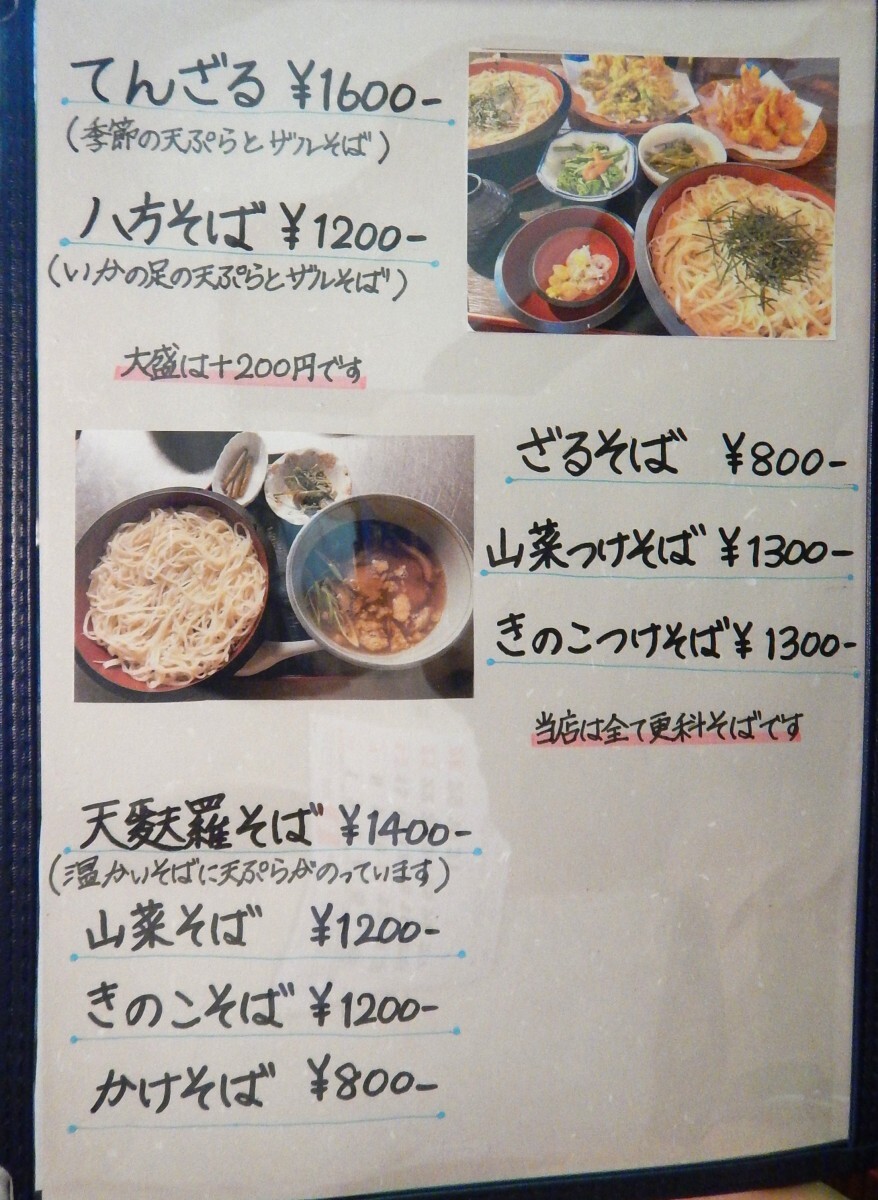 てんざる ¥1600-
(季節の天ぷらとザルそば)
八方そば ¥1200-
(いかの足の天ぷらとザルそば)
大盛は+200円です
ざるそば ¥800-
山菜つけそば ¥1300-
きのこつけそば ¥1300-
当店は全て更科そばです
天麩羅そば ¥1400-
(温かいそばに天ぷらがのっています)
山菜そば ¥1200-
きのこそば ¥1200-
かけそば ¥800-